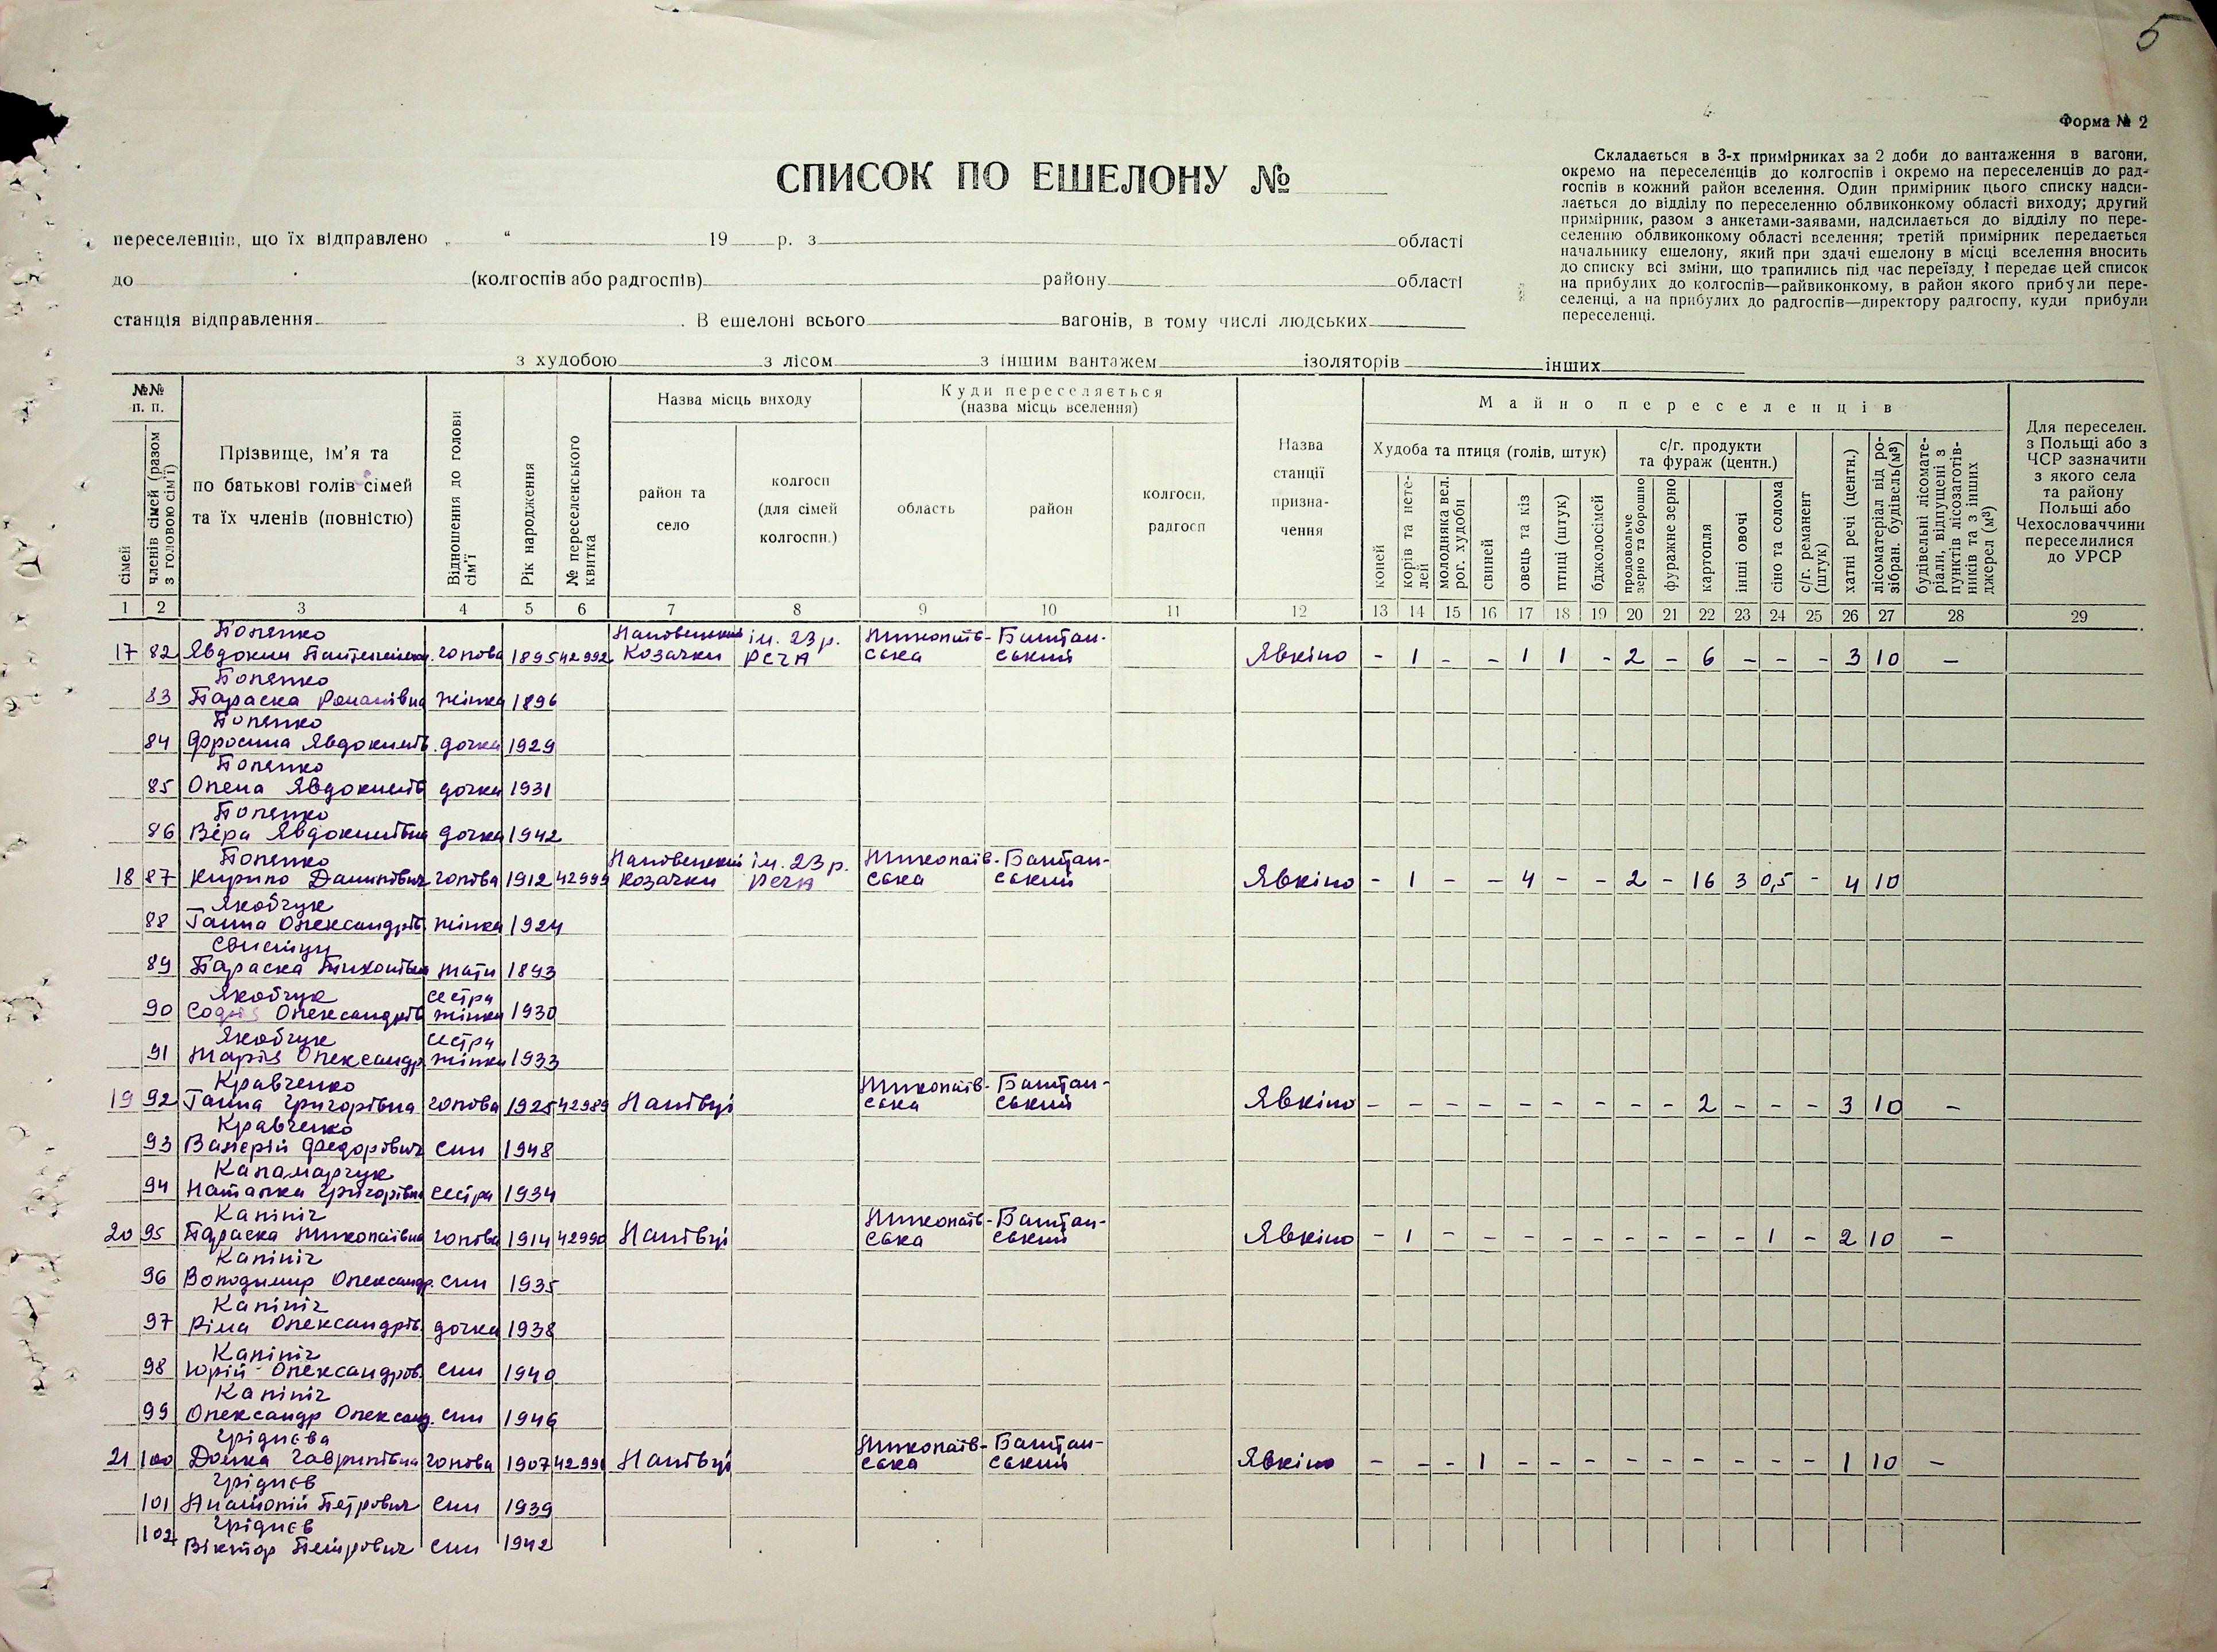 5
Форма № 2
СПИСОК ПО ЕШЕЛОНУ №
Складається в 3-х примірниках за 2 доби до вантаження в вагони,
окремо на переселенців до колгоспів і окремо на переселенців до рад-
госпів в кожний район вселення. Один примірник цього списку надси-
лається до відділу по переселенню облвиконкому області виходу; другий
примірник, разом з анкетами-заявами, надсилається до відділу по пере-
селенню облвиконкому області вселення; третій примірник передається
начальнику ешелону, який при здачі ешелону в місці вселення вносить
до списку всі зміни, що трапились під час переїзду і передає цей список
на прибулих до колгоспів—райвиконкому, в район якого прибули пере-
селенці, а на прибулих до радгоспів—директору радгоспу, куди прибули
переселенці.
переселенців, що їх відправлено „ “ 19 р. з області
до (колгоспів або радгоспів) району області
станція відправлення . В ешелоні всього вагонів, в тому числі людських
з худобою з лісом з іншим вантажем ізоляторів інших
№№ п. п.
сімей
членів сімей (разом з головою сім'ї)
Прізвище, ім'я та
по батькові голів сімей
та їх членів (повністю)
Відношення до голови сім'ї
Рік народження
№ переселенського квитка
Назва місць виходу
район та село
колгосп (для сімей колгоспн.)
Куди переселяється
(назва місць вселення)
область
район
колгосп, радгосп
Назва станції призна-чення
Майно переселенців
Худоба та птиця (голів, штук)
коней
корів та нете-лей
молодняка вел. рог. худоби
свиней
овець та кіз
птиці (штук)
бджолосімей
с/г. продукти та фураж (центн.)
продовольче зерно та борошно
фуражне зерно
картопля
інші овочі
сіно та солома
с/г. реманент (штук)
хатні речі (центн.)
лісоматеріал від ро-зібран. будівель (м³)
будівельні лісомате-ріали, відпущені з пунктів лісозаготів-ників та з інших джерел (м³)
Для переселен.
з Польщі або з
ЧСР зазначити
з якого села
та району
Польщі або
Чехословаччини
переселилися
до УРСР
1 2 3 4 5 6 7 8 9 10 11 12 13 14 15 16 17 18 19 20 21 22 23 24 25 26 27 28 29
Попенко ім. 23 р. Миколаїв- Баштан-
17 82 Явдоким голова 1895 42992 Козачки РСЧА ська ський Явкіно - 1 - - 1 1 - 2 - 6 - - - 3 10 -
Попенко
83 Параска Романівна жінка 1896
Попенко
84 Фросина Явдокимів. дочка 1929
Попенко
85 Олена Явдокимів дочка 1931
Попенко
86 Віра Явдокимівна дочка 1942
Попенко ім. 23 р. Миколаїв- Баштан-
18 87 Кирило Данилович голова 1912 42999 Козачки РСЧА ська ський Явкіно - 1 - - 4 - - 2 - 16 3 0,5 - 4 10
Якобчук
88 Ганна Олександрів жінка 1924
89 Параска Тихонівна мати 1893
Якобчук сестра
90 Софія Олександрів жінки 1930
Якобчук сестра
91 Марія Олександр. жінки 1933
Кравченко Миколаїв- Баштан-
19 92 Ганна Григорівна голова 1925 42989 Налівці ська ський Явкіно - - - - - - - - - 2 - - - 3 10 -
Кравченко
93 Валерій Федорович син 1948
Каламарчук
94 Наталка Григорівна сестра 1934
Калініч Миколаїв- Баштан-
20 95 Параска Миколаївна голова 1914 42990 Налівці ська ський Явкіно - 1 - - - - - - - - - 1 - 2 10 -
Калініч
96 Володимир Олександр. син 1935
Калініч
97 Ріма Олександрів. дочка 1938
Калініч
98 Юрій Олександров. син 1940
Калініч
99 Олександр Олександ. син 1946
Гріднєва Миколаїв- Баштан-
21 100 Домка Гаврилівна голова 1907 42991 Налівці ська ський Явкіно - - - 1 - - - - - - - - - 1 10 -
Гріднєв
101 Анатолій Петрович син 1939
Гріднєв
102 Віктор Петрович син 1942